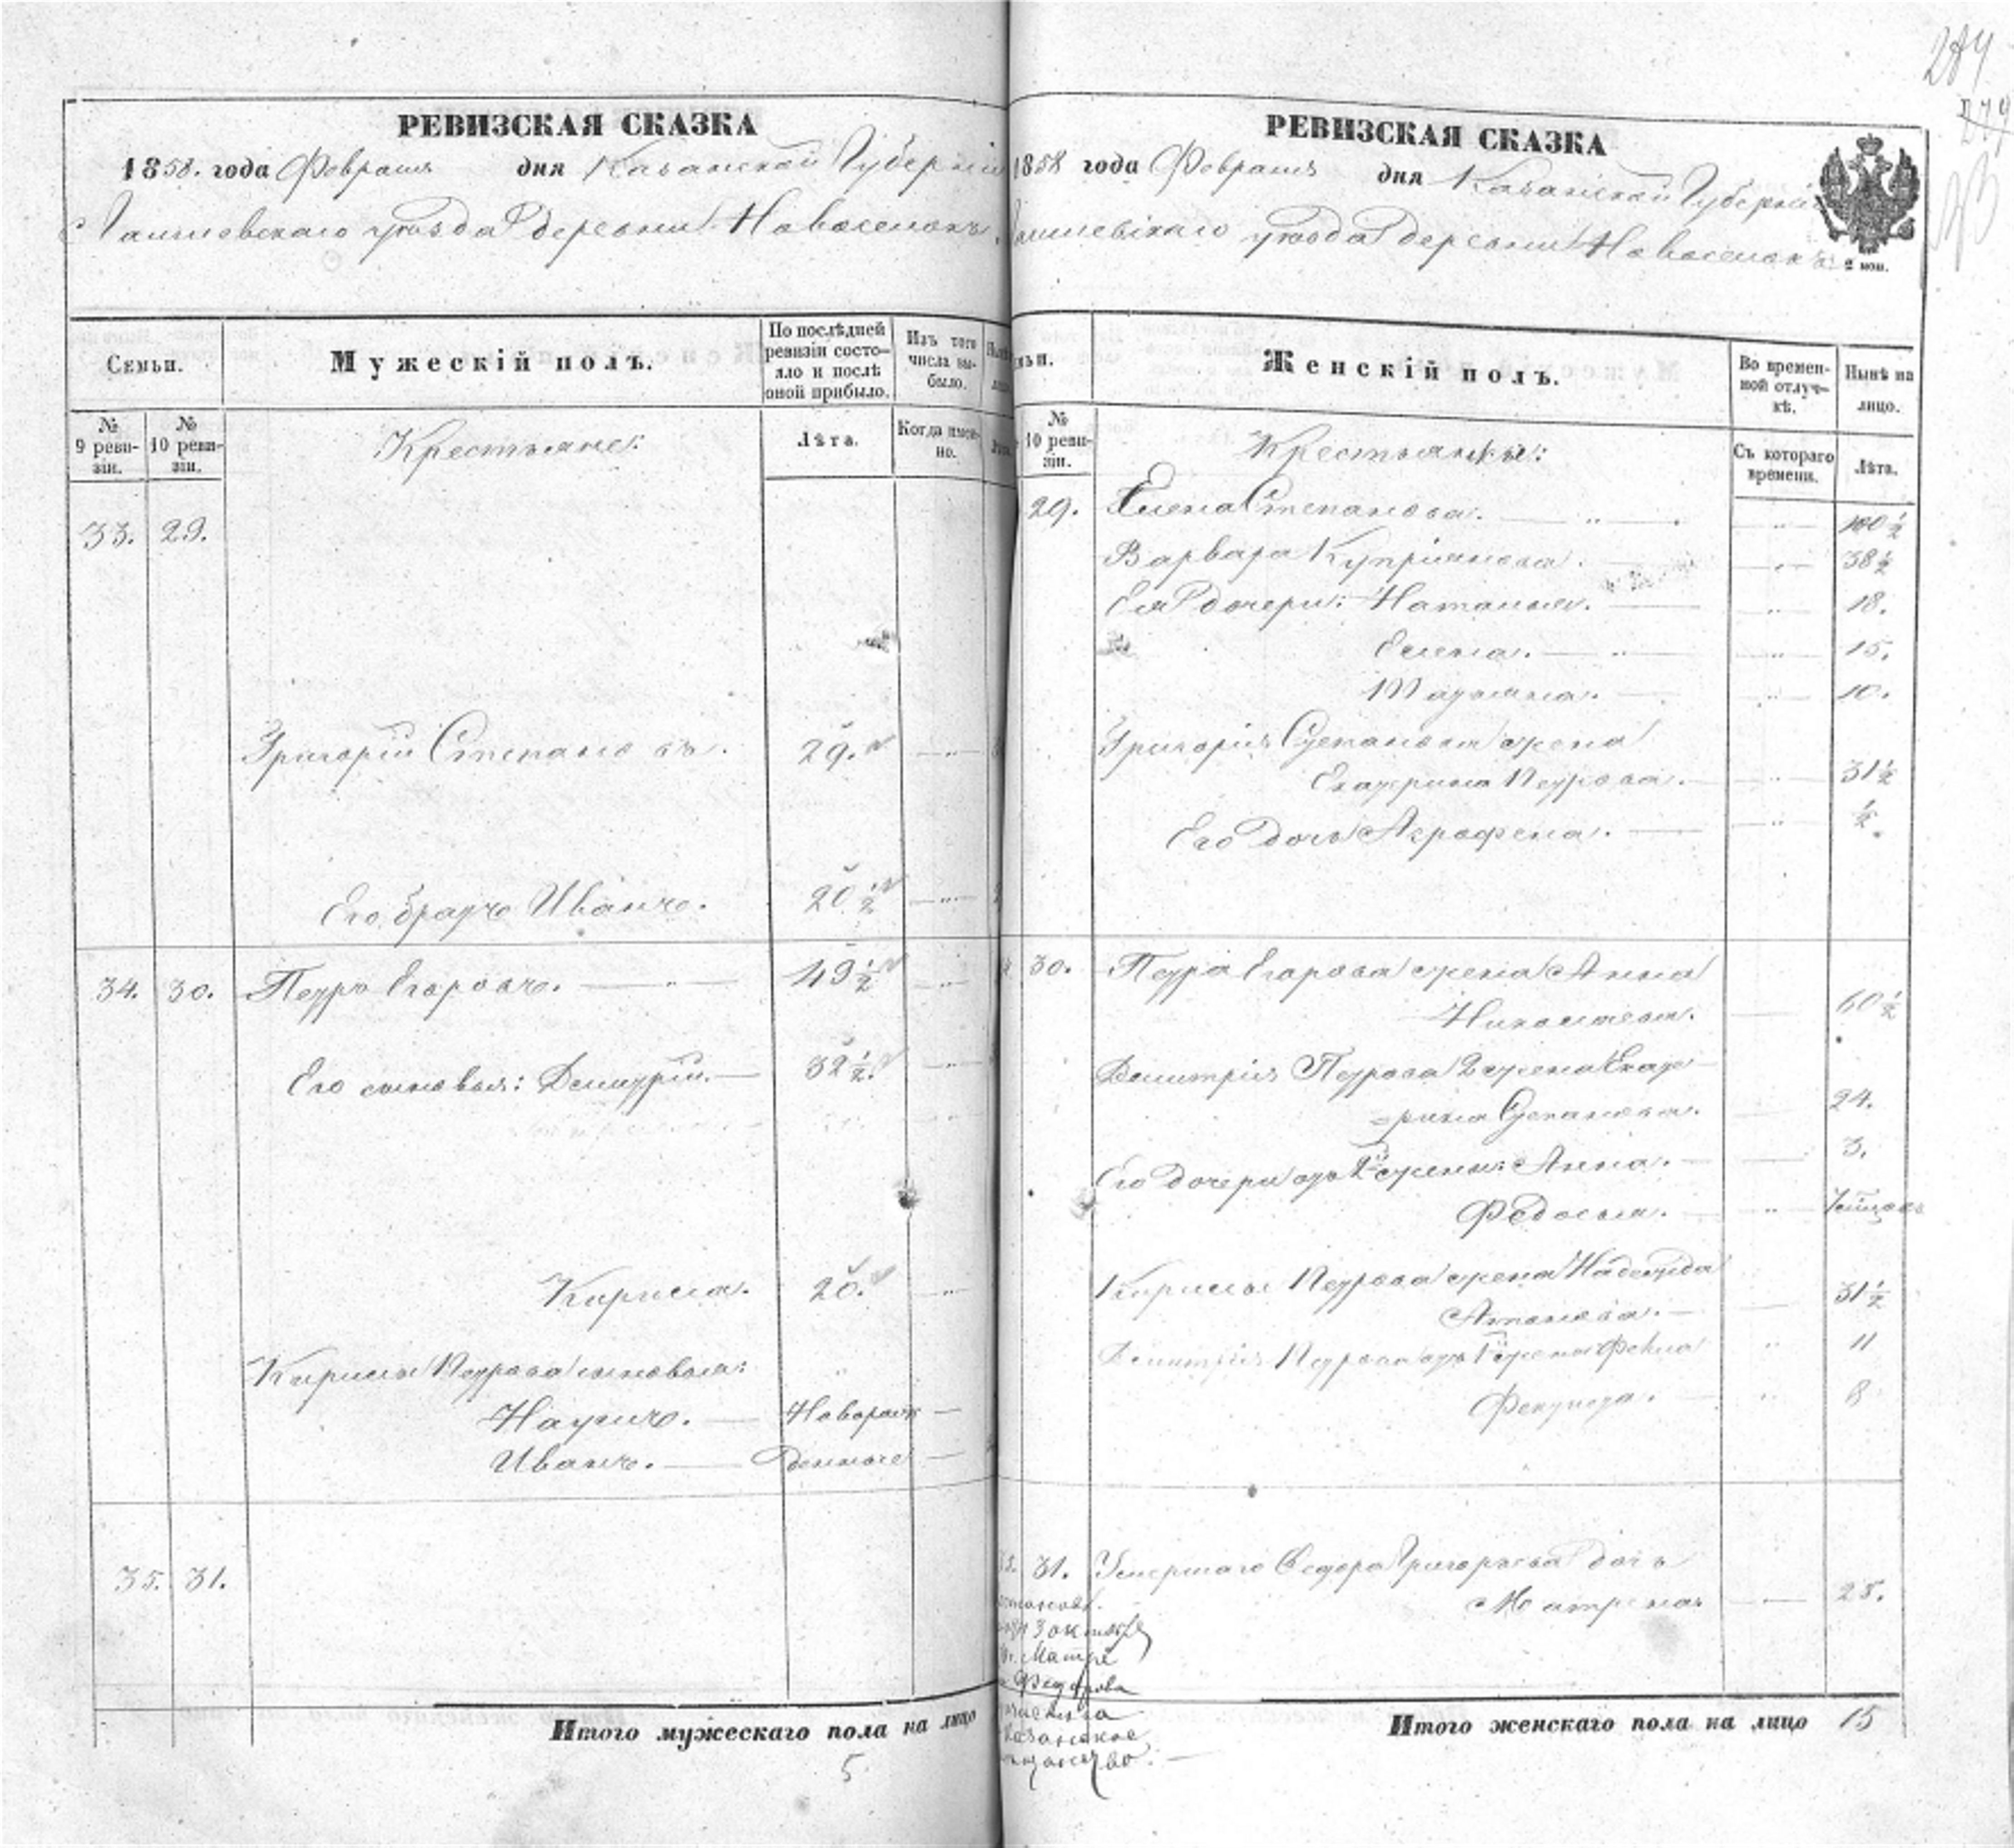 284
РЕВИЗСКАЯ СКАЗКА
1858. года Февраля дня Казанской Губерніи
Лаишевскаго уѣзда деревни Новоселокъ.
Семьи.
Мужескій полъ.
По послѣдней ревизіи состояло и послѣ оной прибыло.
Изъ того числа выбыло.
№ 9 ревизіи.
№ 10 ревизіи.
Крестьяне:
Лѣта.
Когда именно.
33. 29.
Григорій Степановъ. 29.
Его братъ Иванъ. 20 ½
34. 30. Петръ Егоровъ. 49 ½
Его сыновья: Димитрій. 32 ½.
Кирила. 20.
Кирилы Петрова сыновья:
Наумъ. Новорож
Иванъ. денные
35. 31.
Итого мужескаго пола на лицо
5
РЕВИЗСКАЯ СКАЗКА
1858 года Февраля дня Казанской Губерніи
Лаишевскаго уѣзда деревни Новоселокъ
2 коп.
Женскій полъ.
Во временной отлучкѣ.
Нынѣ на лицо.
№ 10 ревизіи.
Крестьянки:
Съ котораго времени.
Лѣта.
29. Елена Степанова. 100 ½
Варвара Купріянова. 38 ½
Ея дочери: Наталья. 18.
Елена. 15.
Татьяна. 10.
Григорія Степанова жена
Екатерина Петрова. 31 ½
Его дочь Аграфена. ½.
30. Петра Егорова жена Анна
60 ½
Димитрія Петрова 2 жена Екате-
рина Степанова. 24.
Его дочери отъ 2й жены: Анна. 3.
Федосья.
Кирилы Петрова жена Надежда
31 ½
Димитрія Петрова отъ 1й жены Фекла 11
8
31. Умершаго Федора Григорьева дочь
Матрена 28.
Матре
Федорова
Казанское
Итого женскаго пола на лицо 15